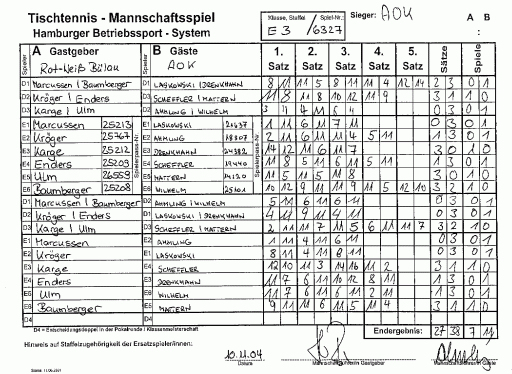 Tischtennis - Mannschaftsspiel
Hamburger Betriebssport - System
Klasse, Staffel E 3 / Spiel-Nr.: 6327
Sieger: AOK
A B
: :
Spieler A Gastgeber Spieler B Gäste 1. 2. 3. 4. 5. Sätze Spiele
Rot-Weiß Bülau AOK Satz Satz Satz Satz Satz
D1 Marcussen / Baumberger D1 LASKOWSKI / DRENKHAHN 8 11 11 5 8 11 11 4 12 14 2 3 0 1
D2 Kröger / Enders D2 SCHEFFLER / MATTERN 11 8 11 8 10 12 11 9 3 1 1 0
D3 Karge / Ulm D3 AHMLING / WILHELM 0 3 0 1
E1 Marcussen 25213 E1 LASKOWSKI 1 11 6 11 7 11 0 3 0 1
E2 Kröger E2 AHMLING 2 11 6 11 11 4 5 11 1 3 0 1
E3 Karge 25212 E3 DRENKHAHN 14 12 11 6 11 7 3 0 1 0
E4 Enders 25203 E4 SCHEFFLER 11 8 5 11 6 11 5 11 1 3 0 1
E5 Ulm 26559 E5 MATTERN 11 5 11 5 11 8 3 0 1 0
E6 Baumberger 25208 E6 WILHELM 10 12 9 11 9 11 5 12 10 3 2 1 0
D1 Marcussen / Baumberger D2 AHMLING / WILHELM 5 11 6 11 6 11 0 3 0 1
D2 Kröger / Enders D1 LASKOWSKI / DRENKHAHN 4 11 9 11 4 11 0 3 0 1
D3 Karge / Ulm D3 SCHEFFLER / MATTERN 2 11 11 7 11 5 6 11 11 7 3 2 1 0
E1 Marcussen E2 AHMLING 1 11 4 11 6 11 0 3 0 1
E2 Kröger E1 LASKOWSKI 8 11 4 11 8 11 0 3 0 1
E3 Karge E4 SCHEFFLER 12 10 11 3 14 16 11 2 3 1 1 0
E4 Enders E3 DRENKHAHN 11 7 6 11 10 12 8 11 1 3 0 1
E5 Ulm E6 WILHELM 11 7 6 11 6 11 2 11 1 3 0 1
E6 Baumberger E5 MATTERN 9 11 11 6 11 5 11 4 3 1 1 0
D4 D4
D4 = Entscheidungsdoppel in der Pokalrunde / Klassenmeisterschaft
Endergebnis: 27 38 7 11
Hinweis auf Staffelzugehörigkeit der Ersatzspieler/innen:
10.11.04
Datum Mannschaftsführer/in Gastgeber Mannschaftsführer/in Gäste